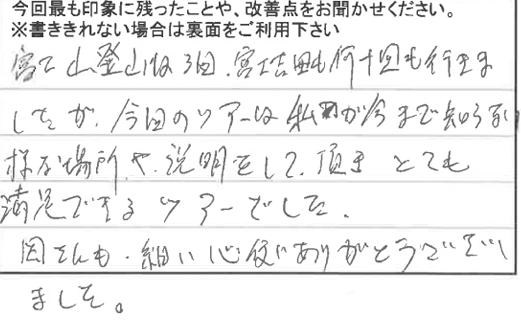 今回最も印象に残ったことや、改善点をお聞かせください。
※書ききれない場合は裏面をご利用下さい
富士山登山は3回、富士吉田も何十回も行きま
したが、今回のツアーは私が今まで知らない
様な場所や、説明をして、頂き とても
満足できるツアーでした。
さんも、細い心使いありがとうございい
ました。